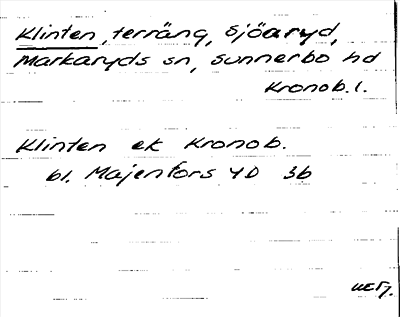 Klinten, terräng, Sjöaryd,
Markaryds sn, Sunnerbo hd
Kronob. l.
Klinten ek Kronob.
bl. Majenfors 4D 3b